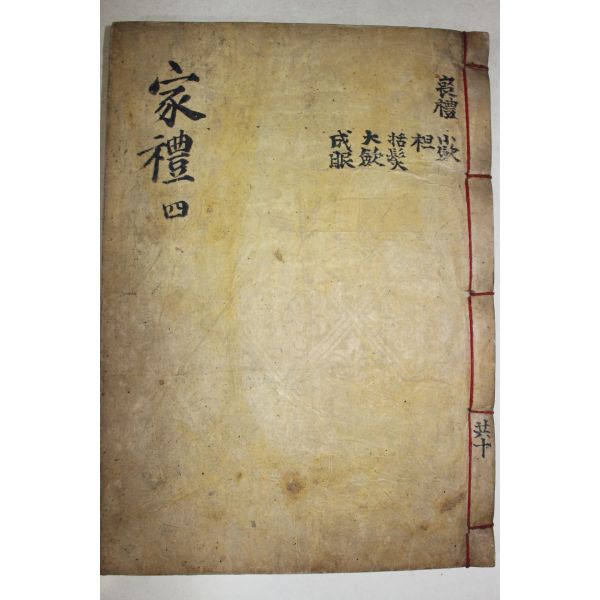 家禮四
喪禮
小歛
袒
括髮
大歛
成服
共十